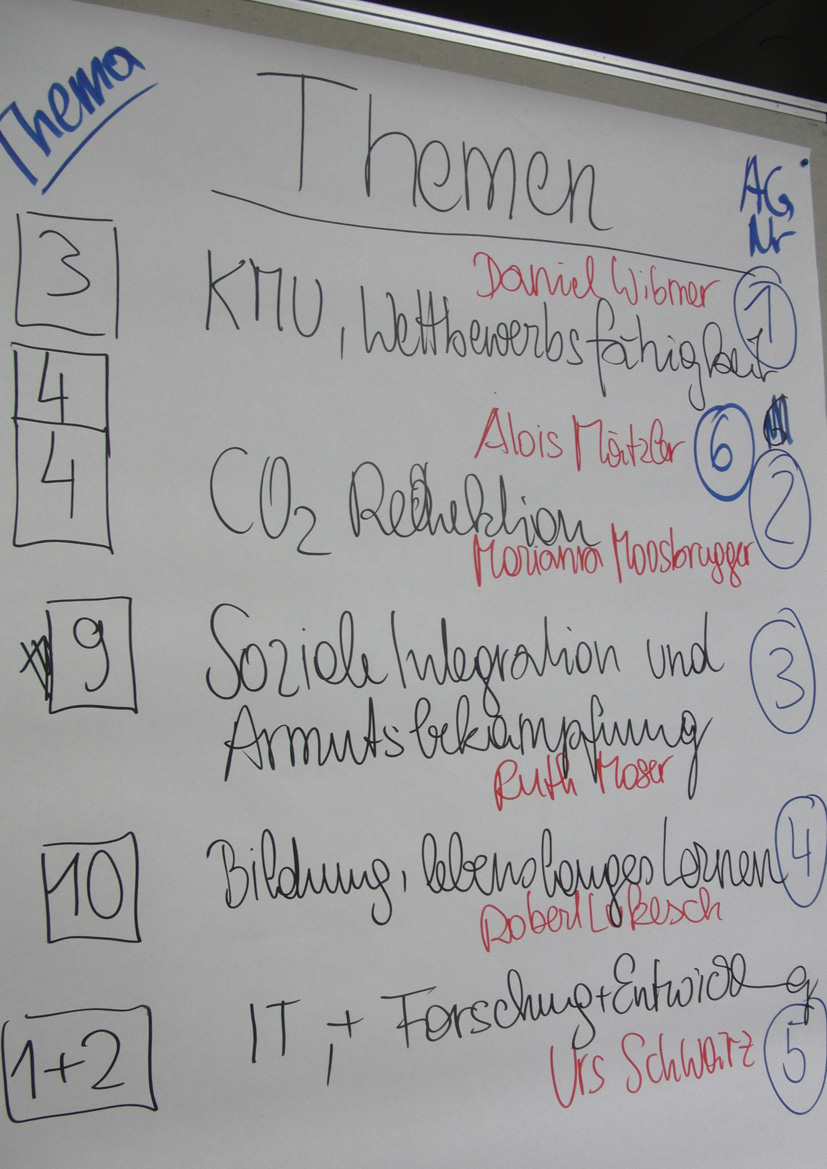 Thema
Themen
AG
Nr
3
Daniel Wibmer
1
KMU, Wettbewerbsfähigkeit
4
Alois Mätzler
6
4
CO2 Reduktion
2
Marianna Moosbrugger
9
Soziale Integration und
3
Armutsbekämpfung
Ruth Moser
10
Bildung, lebenslanges Lernen
4
Robert Lukesch
1+2
IT, + Forschung+Entwickl g
Urs Schwarz
5